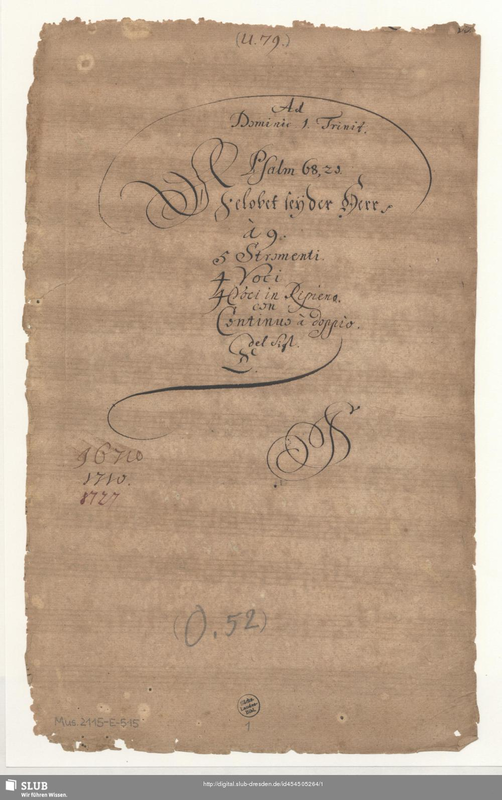 (U.79.)
Ad
Dominic 1. Trinit.
Psalm 68, 20.
Gelobet seÿ der Herr
à 9.
5 Stromenti.
4 Voci
4 Voci in Ripieno.
con
Continuo à doppio.
del Sig.
1670
1710.
1727
(O. 52)
Mus. 2115-E-515
1
SLUB
Wir führen Wissen.
http://digital.slub-dresden.de/id454505264/1